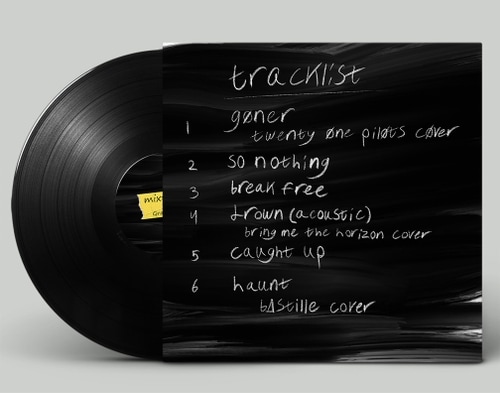 tracklist
1 gøner
twenty øne piløts cøver
2 so nothing
3 break free
4 drown (acoustic)
bring me the horizon cover
5 caught up
6 haunt
bΔstille cover
mix